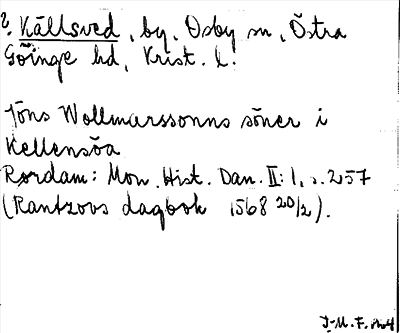 2. Källsved, by, Osby sn, Östra
Göinge hd, Krist. l.
Jöns Wollmarssonns söner i
Kellensöa
Rørdam: Mon. Hist. Dan. II: 1, s. 257
(Rantzovs dagbok 1568 20/2).
J-M. F.